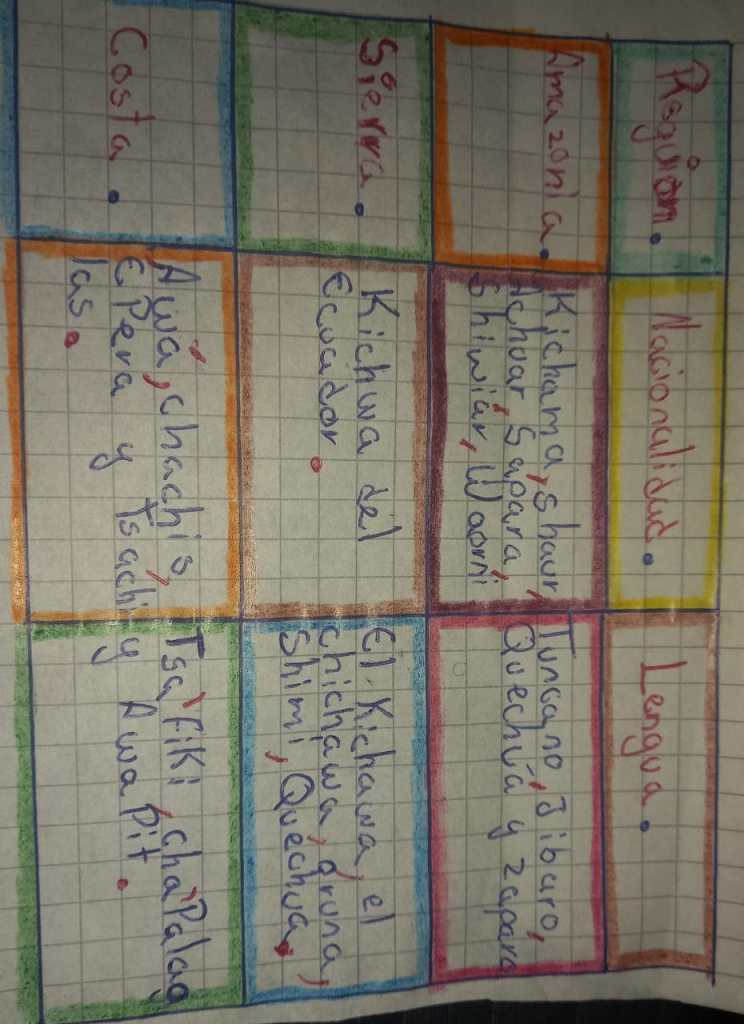 Reguión.
Nacionalidad.
Lengua.
Amazonia.
Kichama, shaur,
Achuar, Sapara,
Shiwiar, Waorni
Tuncano, Jibaro,
Quechua y zapara
Sierra.
Kichwa del
Ecuador.
El Kichawa, el
chichawa, aruna,
Shimi, Quechua.
Costa.
Awa, chachis,
EPera y Tsachi
las.
Tsa'fiki, cha'Palag
y AwaPit.